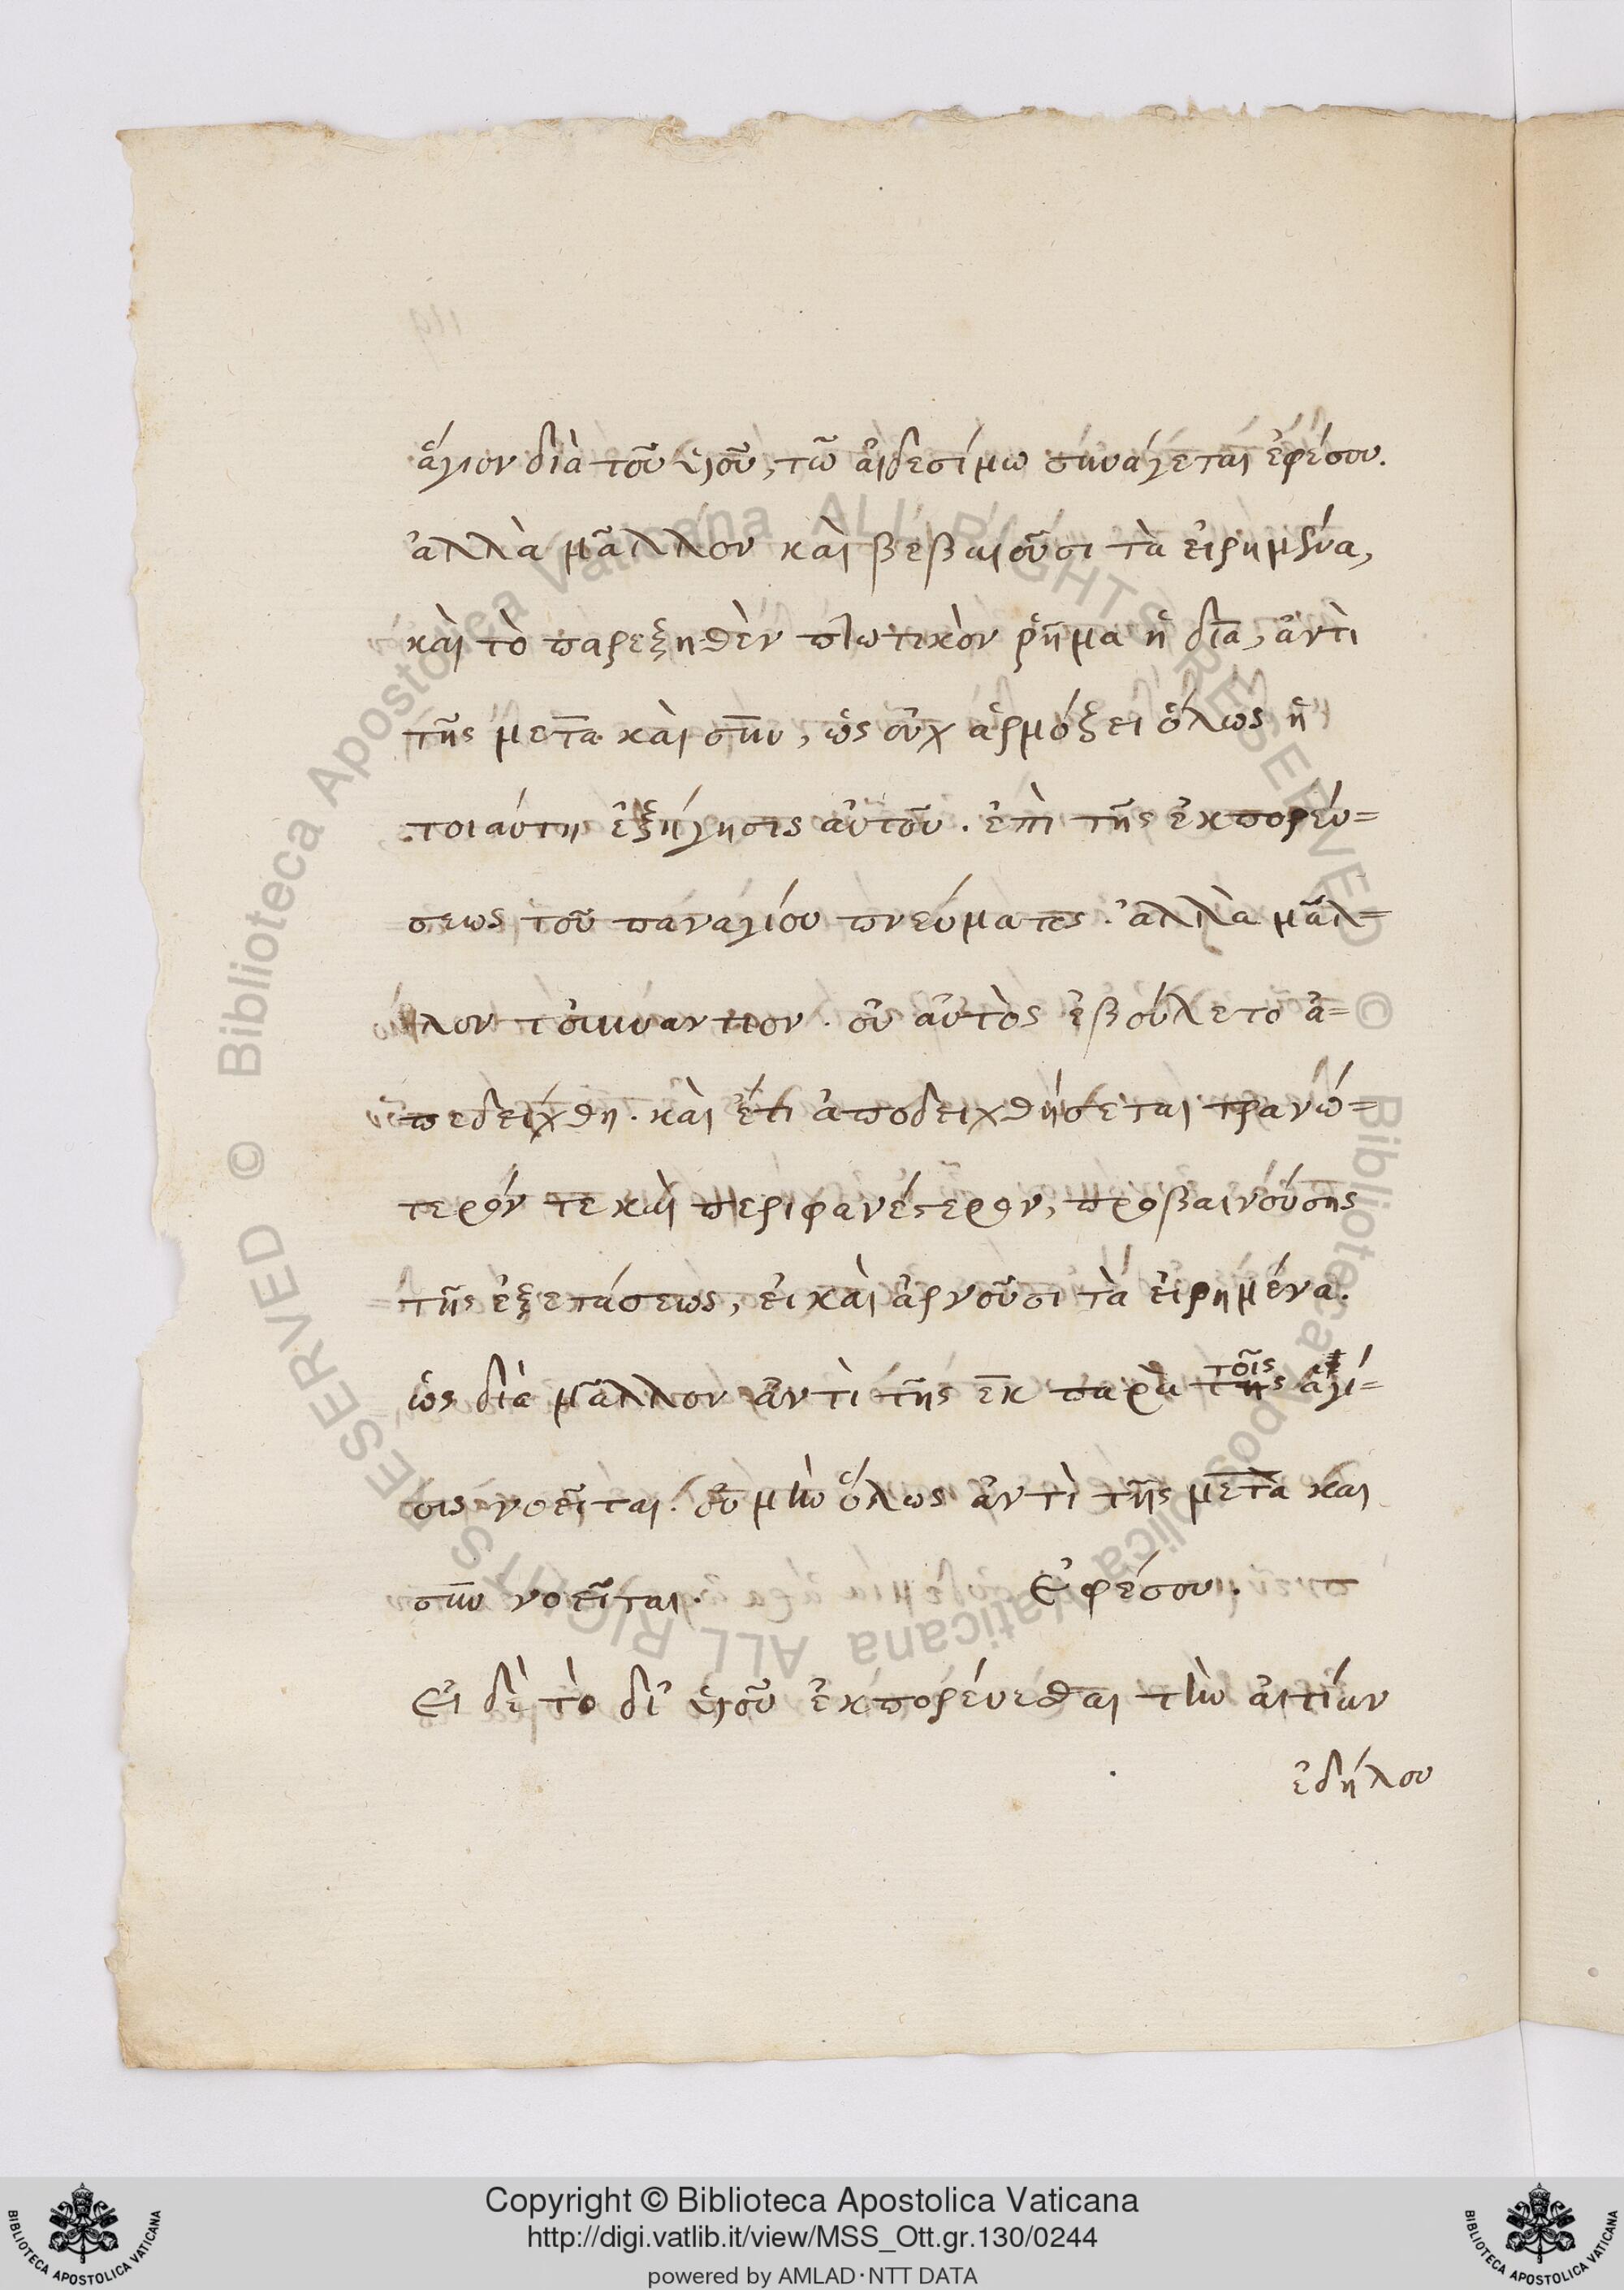 ἅγιον διὰ τοῦ υἱοῦ, τῶ αἰδεσίμω συνάγεται ἐφέσου.
ἀλλὰ μᾶλλον καὶ βεβαιοῦσι τὰ εἰρημένα,
καὶ τὸ παρεξηθὲν πτωτικὸν ῥῆμα ἡ δια, ἀντὶ
τῆς μετα καὶ συν, ὡς οὐχ ἁρμόξει ὅλως ἡ
τοιαύτη ἐξήγησις αὐτοῦ. ἐπὶ τῆς ἐκπορεύ=
σεως τοῦ παναγίου πνεύματος. ἀλλὰ μᾶλ=
λον τοὐναντίον. οὐ αὐτὸς ἐβούλετο ἀ=
πεδείχθη. καὶ ἔτι ἀποδειχθήσεται τρανώ=
τερόν τε καὶ περιφανέστερον, προβαινούσης
τῆς ἐξετάσεως, εἰ καὶ ἀρνοῦσι τὰ εἰρημένα.
ὡς διὰ μᾶλλον ἀντὶ τῆς εκ παρὰ τοῖς ἁγί=
οις νοεῖται. οὐ μὴν ὅλως ἀντὶ τῆς μετὰ και
συν νοεῖται. Ἐφέσου.
Εἰ δὲ τὸ δι' υἱοῦ ἐκπορεύεσθαι τὴν αἰτίαν
ἐδήλου
Copyright © Biblioteca Apostolica Vaticana
http://digi.vatlib.it/view/MSS_Ott.gr.130/0244
powered by AMLAD·NTT DATA
BIBLIOTECA APOSTOLICA VATICANA
BIBLIOTECA APOSTOLICA VATICANA
© Biblioteca Apostolica Vaticana ALL RIGHTS RESERVED
© Biblioteca Apostolica Vaticana ALL RIGHTS RESERVED